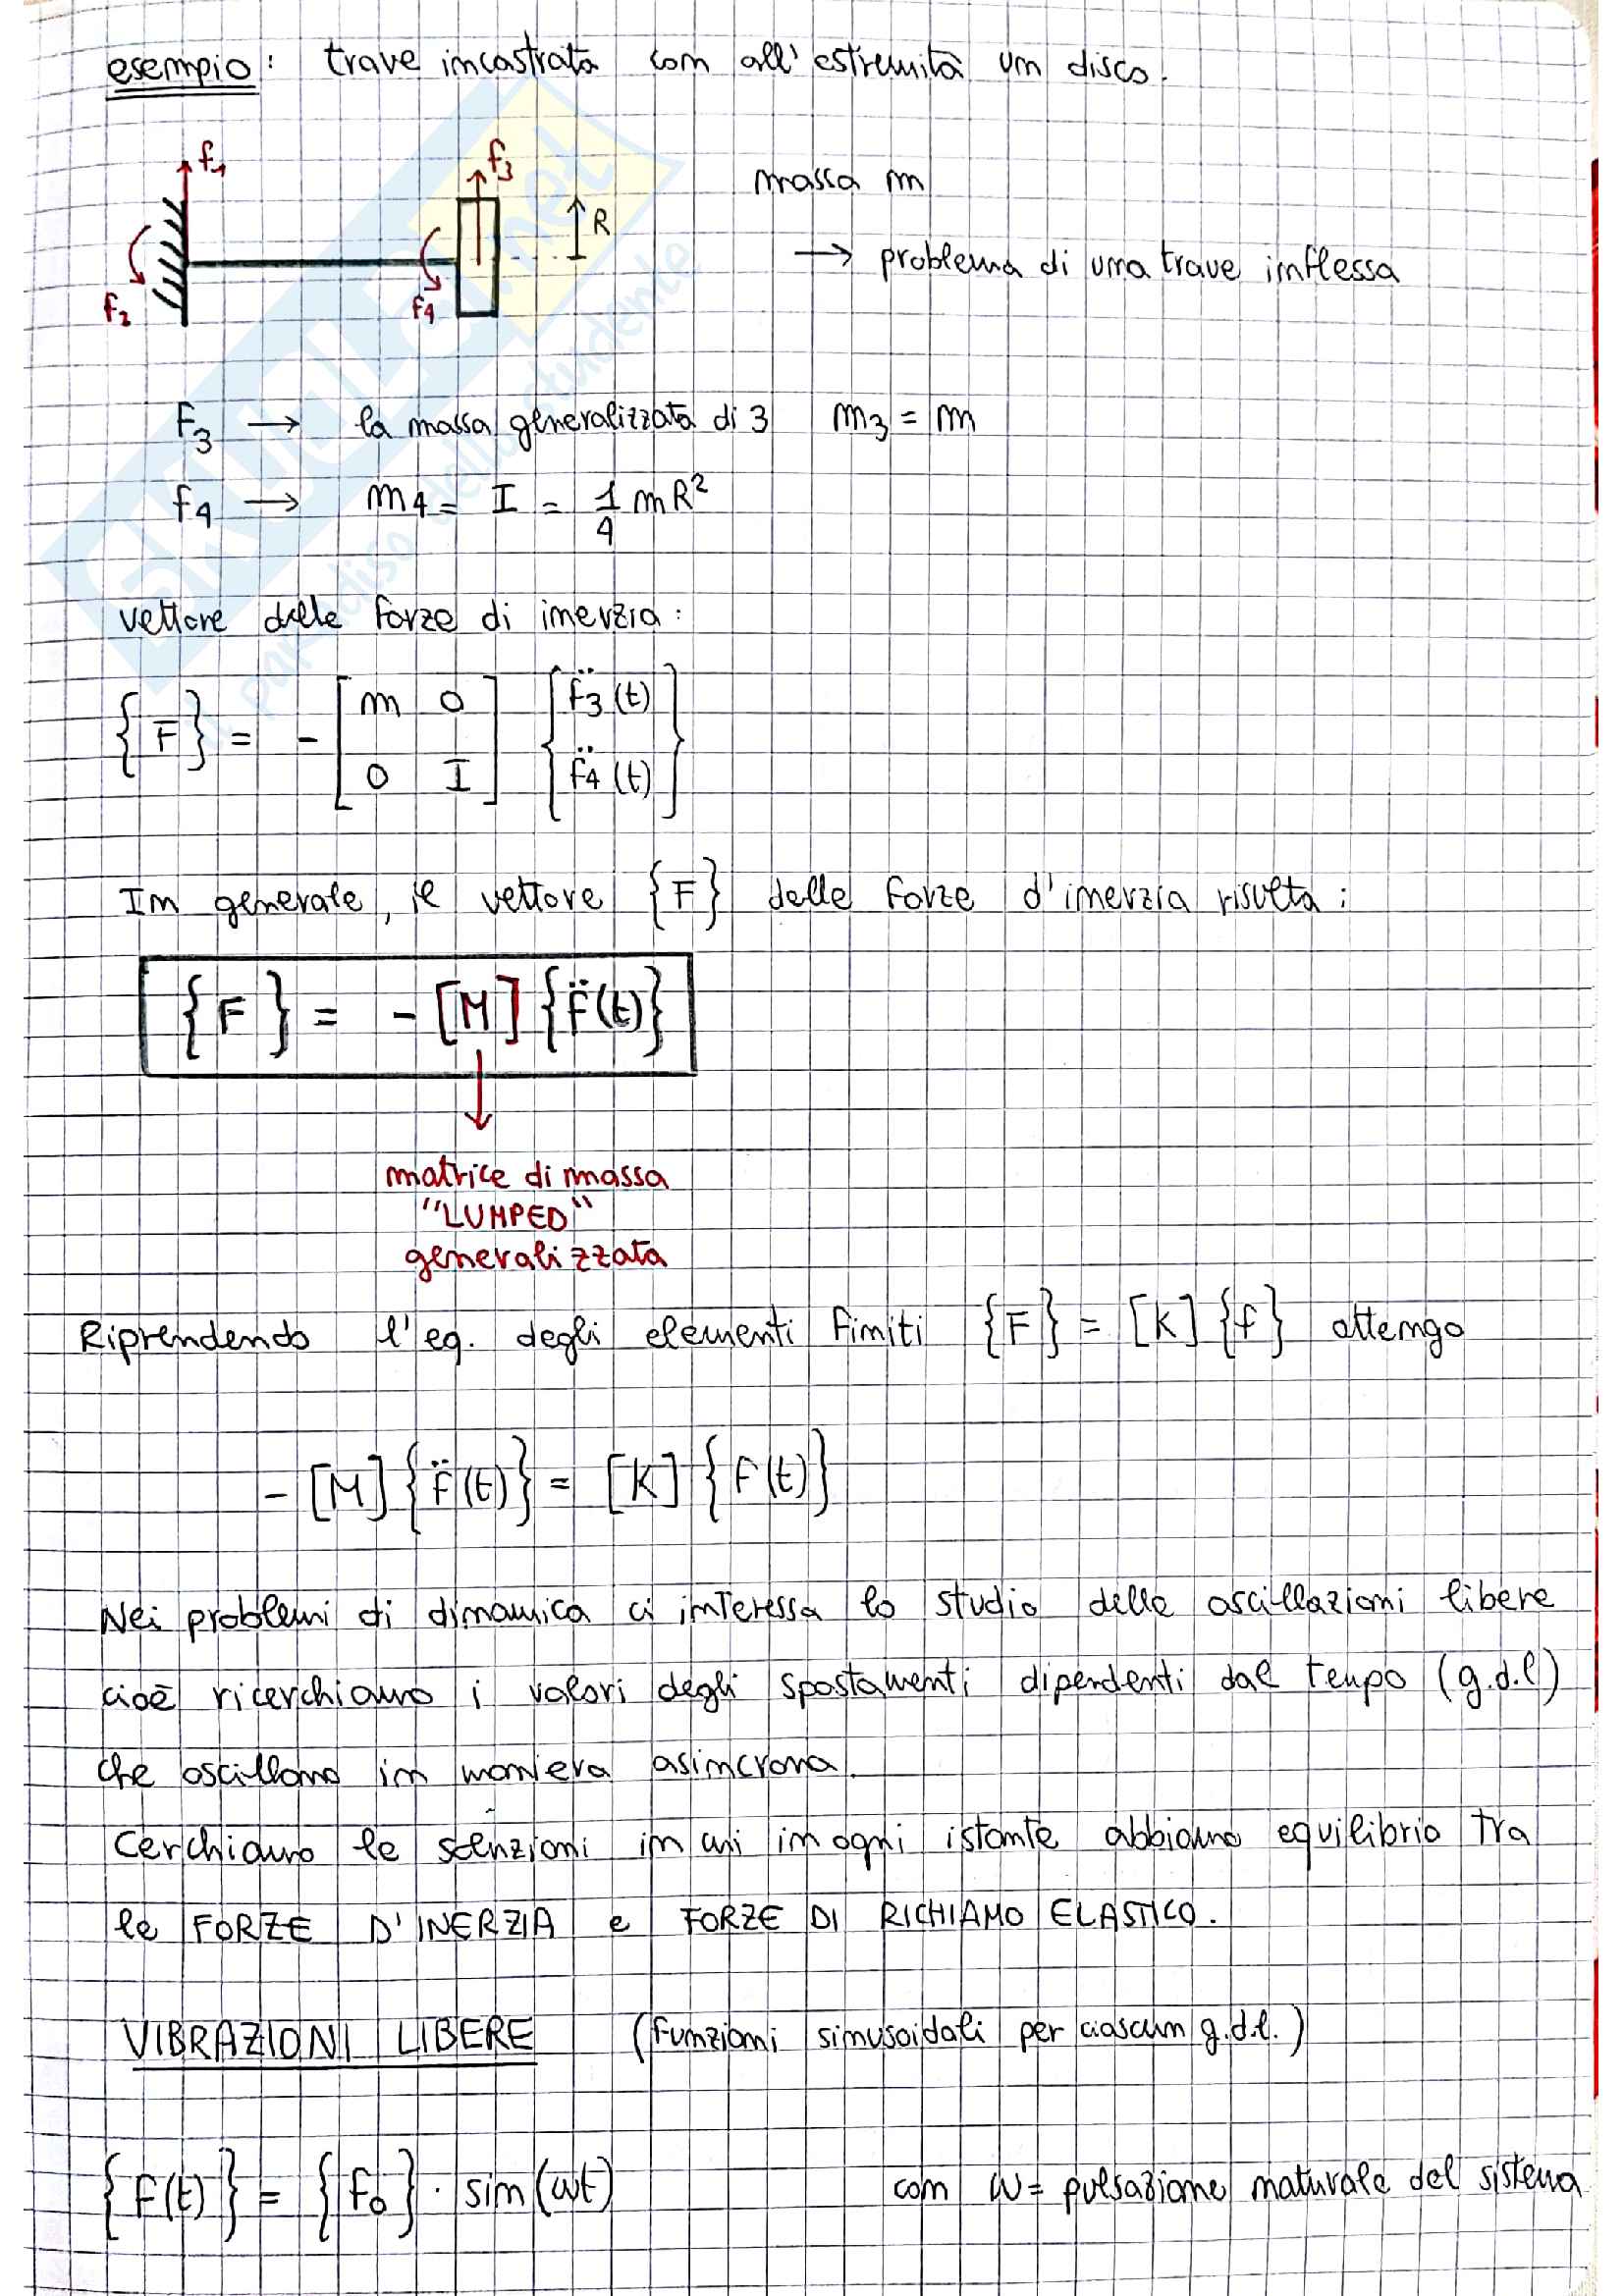 esempio: trave incastrata con all'estremità un disco.
f1
f3
massa m
R
→ problema di una trave inflessa
f2
f4
F3 → la massa generalizzata di 3 m3 = m
f4 → m4 = I = 1/4 mR²
vettore delle forze di inerzia:
{F} = - [m 0; 0 I] {f̈3(t); f̈4(t)}
In generale, il vettore {F} delle forze d'inerzia risulta:
{F} = - [M] {f̈(t)}
matrice di massa
"LUMPED"
generalizzata
Riprendendo l'eq. degli elementi finiti {F} = [K] {f} ottengo
- [M] {f̈(t)} = [K] {f(t)}
Nei problemi di dinamica ci interessa lo studio delle oscillazioni libere
cioè ricerchiamo i valori degli spostamenti dipendenti dal tempo (g.d.l)
che oscillano in maniera asincrona.
Cerchiamo le soluzioni in cui in ogni istante abbiamo equilibrio tra
le FORZE D'INERZIA e FORZE DI RICHIAMO ELASTICO.
VIBRAZIONI LIBERE (funzioni sinusoidali per ciascun g.d.l.)
{f(t)} = {f0} · sin(ωt) con ω = pulsazione naturale del sistema
SKUOLA.net
il paradiso dello studente